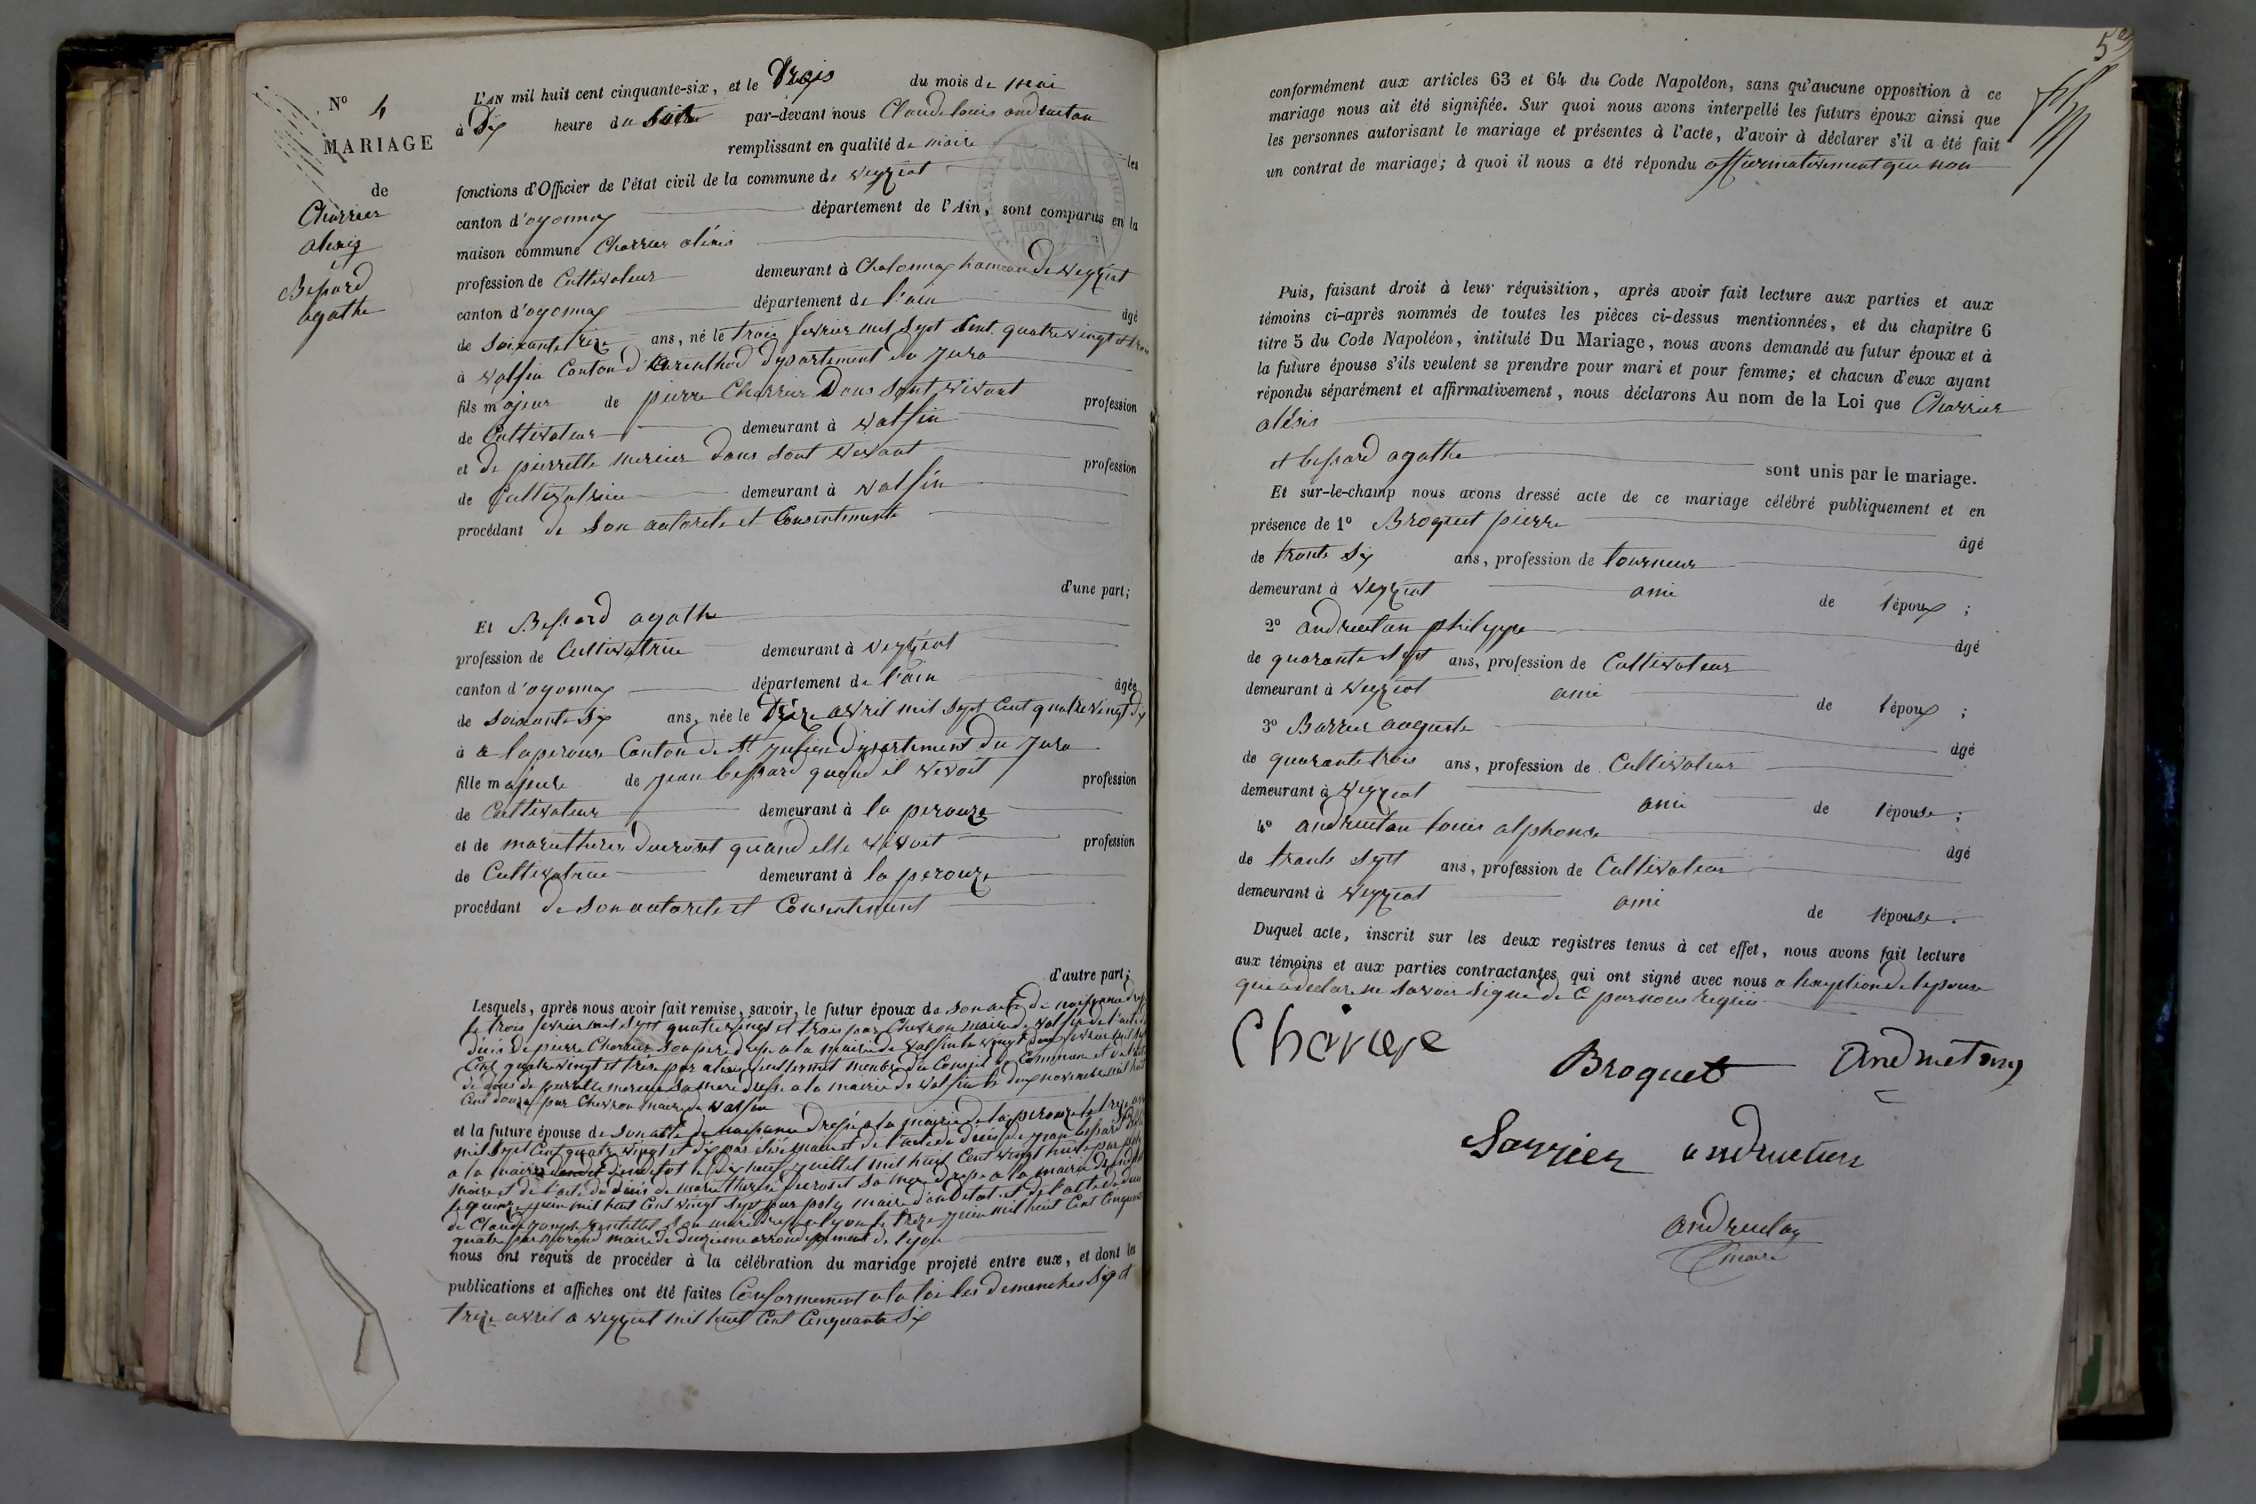 N° 4
MARIAGE
de
Charrier
alexis
et
Bessard
agathe
L'AN mil huit cent cinquante-six, et le trois du mois de mai
à Dix heure du Soir par-devant nous Claude Louis andruetan
remplissant en qualité de maire les
fonctions d'Officier de l'état civil de la commune de veyziat
canton d'oyonnax département de l'Ain, sont comparus en la
maison commune Charrier aléxis
profession de Cultivateur demeurant à Chatonnax hameau de veyziat
canton d'oyonnax département de l'ain âgé
de Soixante treize ans, né le trois fevrier mil Sept Cent quatre vingt et trois
à valfin Canton d'arinthod département du Jura
fils majeur de pierre Charrier Dans Sont vivant profession
de Cultivateur demeurant à valfin
et de pierrette mercier dans sont vivant profession
de Cultivatrice demeurant à valfin
procédant de Son autorité et Consentement
d'une part;
Et Bessard agathe
profession de Cultivatrice demeurant à veyziat
canton d'oyonnax département de l'ain âgée
de Soixante Six ans, née le treize avril mil Sept Cent quatre vingt dix
à a laperouse Canton de St Julien département du Jura
fille majeure de jean bessard quand il vivoit profession
de Cultivateur demeurant à la perouze
et de marietherese ducrost quand elle vivoit profession
de Cultivatrice demeurant à la perouze
procédant de Son autorité et Consentement
d'autre part;
Lesquels, après nous avoir fait remise, savoir, le futur époux de Son acte de naissance
le trois fevrier mil Sept quatre vingt et trois par Chevron maire de valfin de l'acte
décès de pierre Charrier Son pere a la mairie de valfin le vingt deux fevrier mil
Cent quatre vingt et treize par membre du Conseil de Commune et
de pierrette mercier Sa mere dressé a la mairie de valfin le dix novembre mil huit
Cent douze par Chevron maire de valfin
et la future épouse de Son acte de naissance dressé a la mairie de la perouze le treize avril
mil Sept Cent quatre vingt et dix par maire et de l'acte de décès de jean bessard
a la mairie le dix neuf juillet mil huit Cent vingt huit par
maire et de l'acte de décès de marietherese ducrost Sa mere dressé a la mairie
le quinze juin mil huit Cent vingt Sept par poly maire et de l'acte de décès
de Claude joseph Son mari a lyon le treize juin mil huit Cent Cinquante
quatre par maire de deuxieme arrondissement de lyon
nous ont requis de procéder à la célébration du mariage projeté entre eux, et dont les
publications et affiches ont été faites Conformement a la loi les dimanches Six et
treize avril a veyziat mil huit Cent Cinquante Six
5
conformément aux articles 63 et 64 du Code Napoléon, sans qu'aucune opposition à ce
mariage nous ait été signifiée. Sur quoi nous avons interpellé les futurs époux ainsi que
les personnes autorisant le mariage et présentes à l'acte, d'avoir à déclarer s'il a été fait
un contrat de mariage; à quoi il nous a été répondu affirmativement que non
Puis, faisant droit à leur réquisition, après avoir fait lecture aux parties et aux
témoins ci-après nommés de toutes les pièces ci-dessus mentionnées, et du chapitre 6
titre 5 du Code Napoléon, intitulé Du Mariage, nous avons demandé au futur époux et à
la future épouse s'ils veulent se prendre pour mari et pour femme; et chacun d'eux ayant
répondu séparément et affirmativement, nous déclarons Au nom de la Loi que Charrier
aléxis
et bessard agathe sont unis par le mariage.
Et sur-le-champ nous avons dressé acte de ce mariage célébré publiquement et en
présence de 1° Broquet pierre âgé
de trante Six ans, profession de tourneur
demeurant à veyziat ami de l'époux ;
2° andruetan philippe âgé
de quarante Sept ans, profession de Cultivateur
demeurant à veyziat ami de l'époux ;
3° Barrier auguste âgé
de quarante trois ans, profession de Cultivateur
demeurant à veyziat ami de l'épouse ;
4° andruetan louis alphonse âgé
de trante Sept ans, profession de Cultivateur
demeurant à veyziat ami de l'épouse .
Duquel acte, inscrit sur les deux registres tenus à cet effet, nous avons fait lecture
aux témoins et aux parties contractantes qui ont signé avec nous a l'exeption de l'épouse
qui a déclaré ne Savoir Signé de Ce par nous requis
Broquet
andruetan
maire